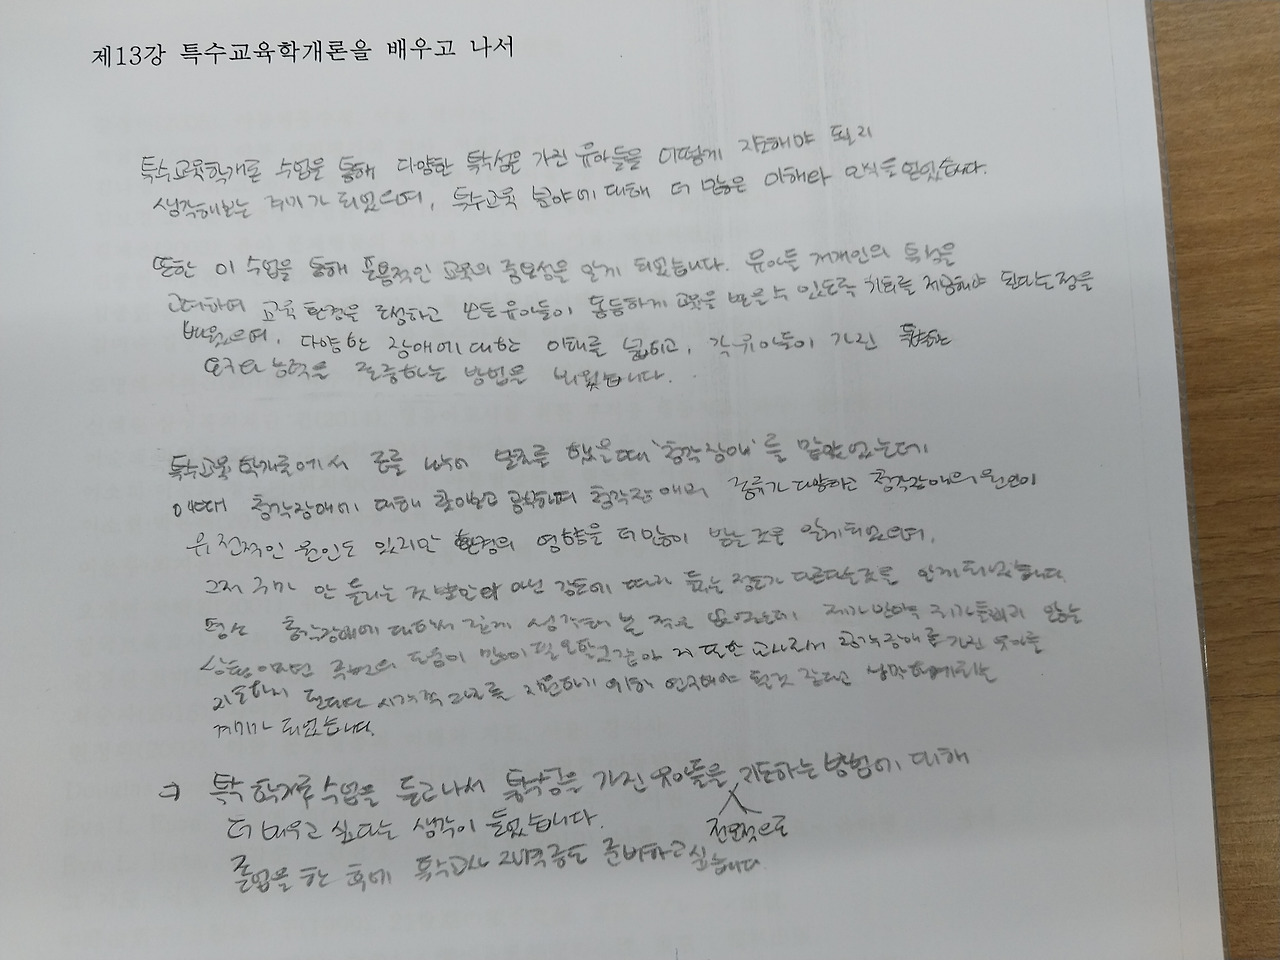 제13강 특수교육학개론을 배우고 나서
특수교육학개론 수업을 통해 다양한 특수성을 가진 유아들을 어떻게 지도해야 될지
생각해보는 계기가 되었으며, 특수교육 분야에 대해 더 많은 이해와 인식을 얻었습니다.
또한 이 수업을 통해 포용적인 교육의 중요성을 알게 되었습니다. 유아들 개개인의 특성을
고려하며 교육 환경을 조성하고 모든 유아들이 동등하게 교육을 받을 수 있도록 기회를 제공해야 된다는 점을
배웠으며, 다양한 장애에 대한 이해를 넓히고, 각 유아들이 가진 특별한
요구와 능력을 존중하는 방법을 배웠습니다.
특수교육학개론에서 조를 나눠 발표를 했을때 '청각장애'를 맡았었는데
이때 청각장애에 대해 찾아보고 공부하며 청각장애의 종류가 다양하고 청각장애의 원인이
유전적인 원인도 있지만 환경의 영향을 더 많이 받는 것을 알게되었으며,
그저 귀가 안 들리는 것 뿐만이 아닌 강도에 따라 듣는 정도가 다르다는것을 알게되었습니다.
평소 청각장애에 대해서 깊게 생각해 본 적은 없었는데 제가 만약 귀가 들리지 않는
상황이라면 주변의 도움이 많이 필요할 것 같아 저 또한 교사로서 청각장애를 가진 유아를
지도하게 된다면 시각적 자료를 지원하기 위해 연구해야 될것 같다고 생각하게되는
계기가 되었습니다.
⇒ 특수학개론 수업을 듣고나서 특수성을 가진 유아들을 지도하는 방법에 대해
더 배우고 싶다는 생각이 들었습니다.
전문적으로
졸업을 한 후에 특수교사 자격증도 준비하고 싶습니다.